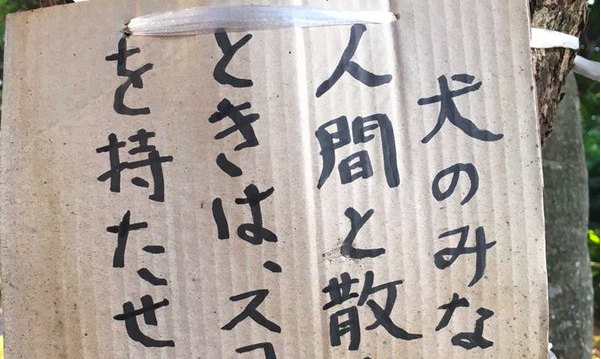 犬のみな
人間と散
ときは、ス
を持たせ